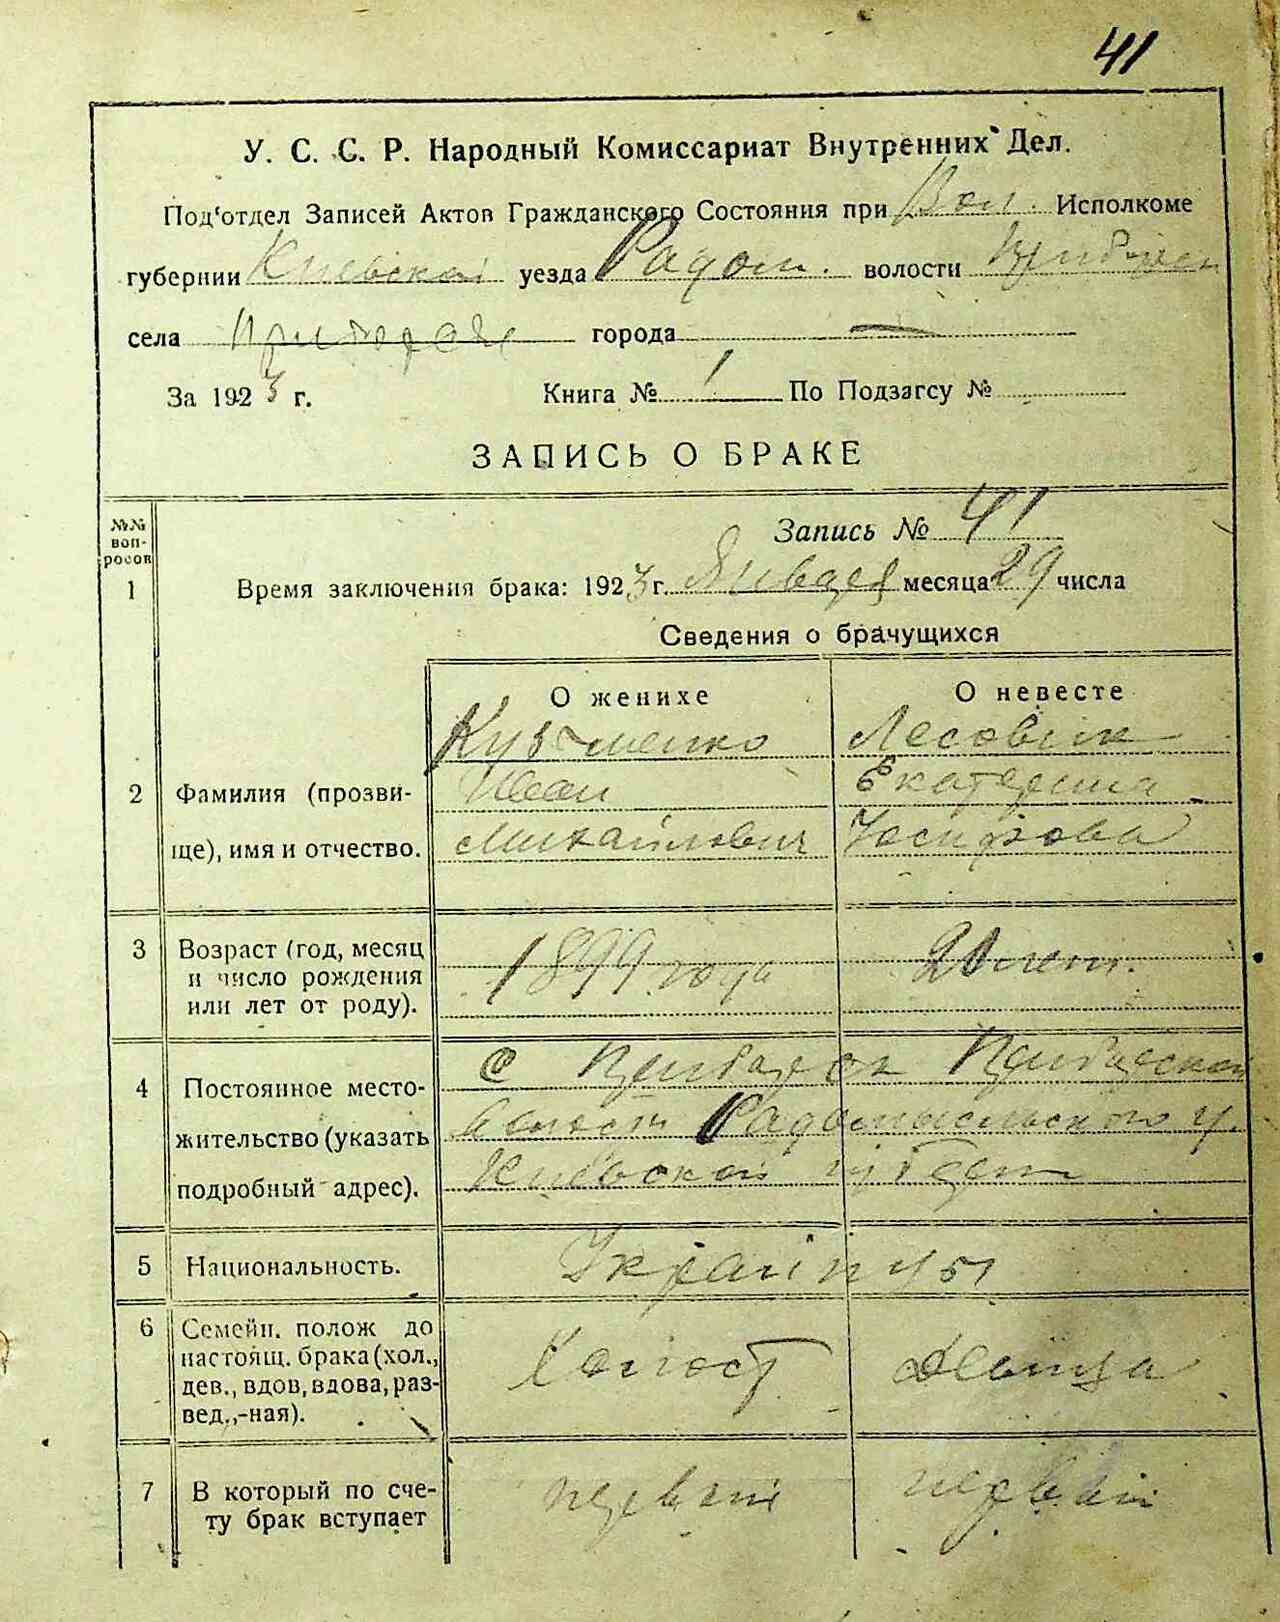 41
У. С. С. Р. Народный Комиссариат Внутренних Дел.
Под'отдел Записей Актов Гражданского Состояния при Вол. Исполкоме
губернии Киевской уезда Радом. волости
села города —
За 1923 г. Книга № 1 По Подзагсу №
ЗАПИСЬ О БРАКЕ
№№ вопросов
Запись № 41
1 Время заключения брака: 1923 г. Января месяца 29 числа
Сведения о брачущихся
О женихе О невесте
Кузьменко Лесовик
2 Фамилия (прозви- Иван Екатерина
ще), имя и отчество. Михайлович Иосифова
3 Возраст (год, месяц
и число рождения 1899 года 20 лет.
или лет от роду).
с
4 Постоянное место-
жительство (указать волости Радомысльского у.
подробный адрес). Киевской губерн
5 Национальность. Украінцы
6 Семейн. полож до
настоящ. брака (хол., Холост Девица
дев., вдов, вдова, раз-
вед.,-ная).
7 В который по сче- первый первый
ту брак вступает